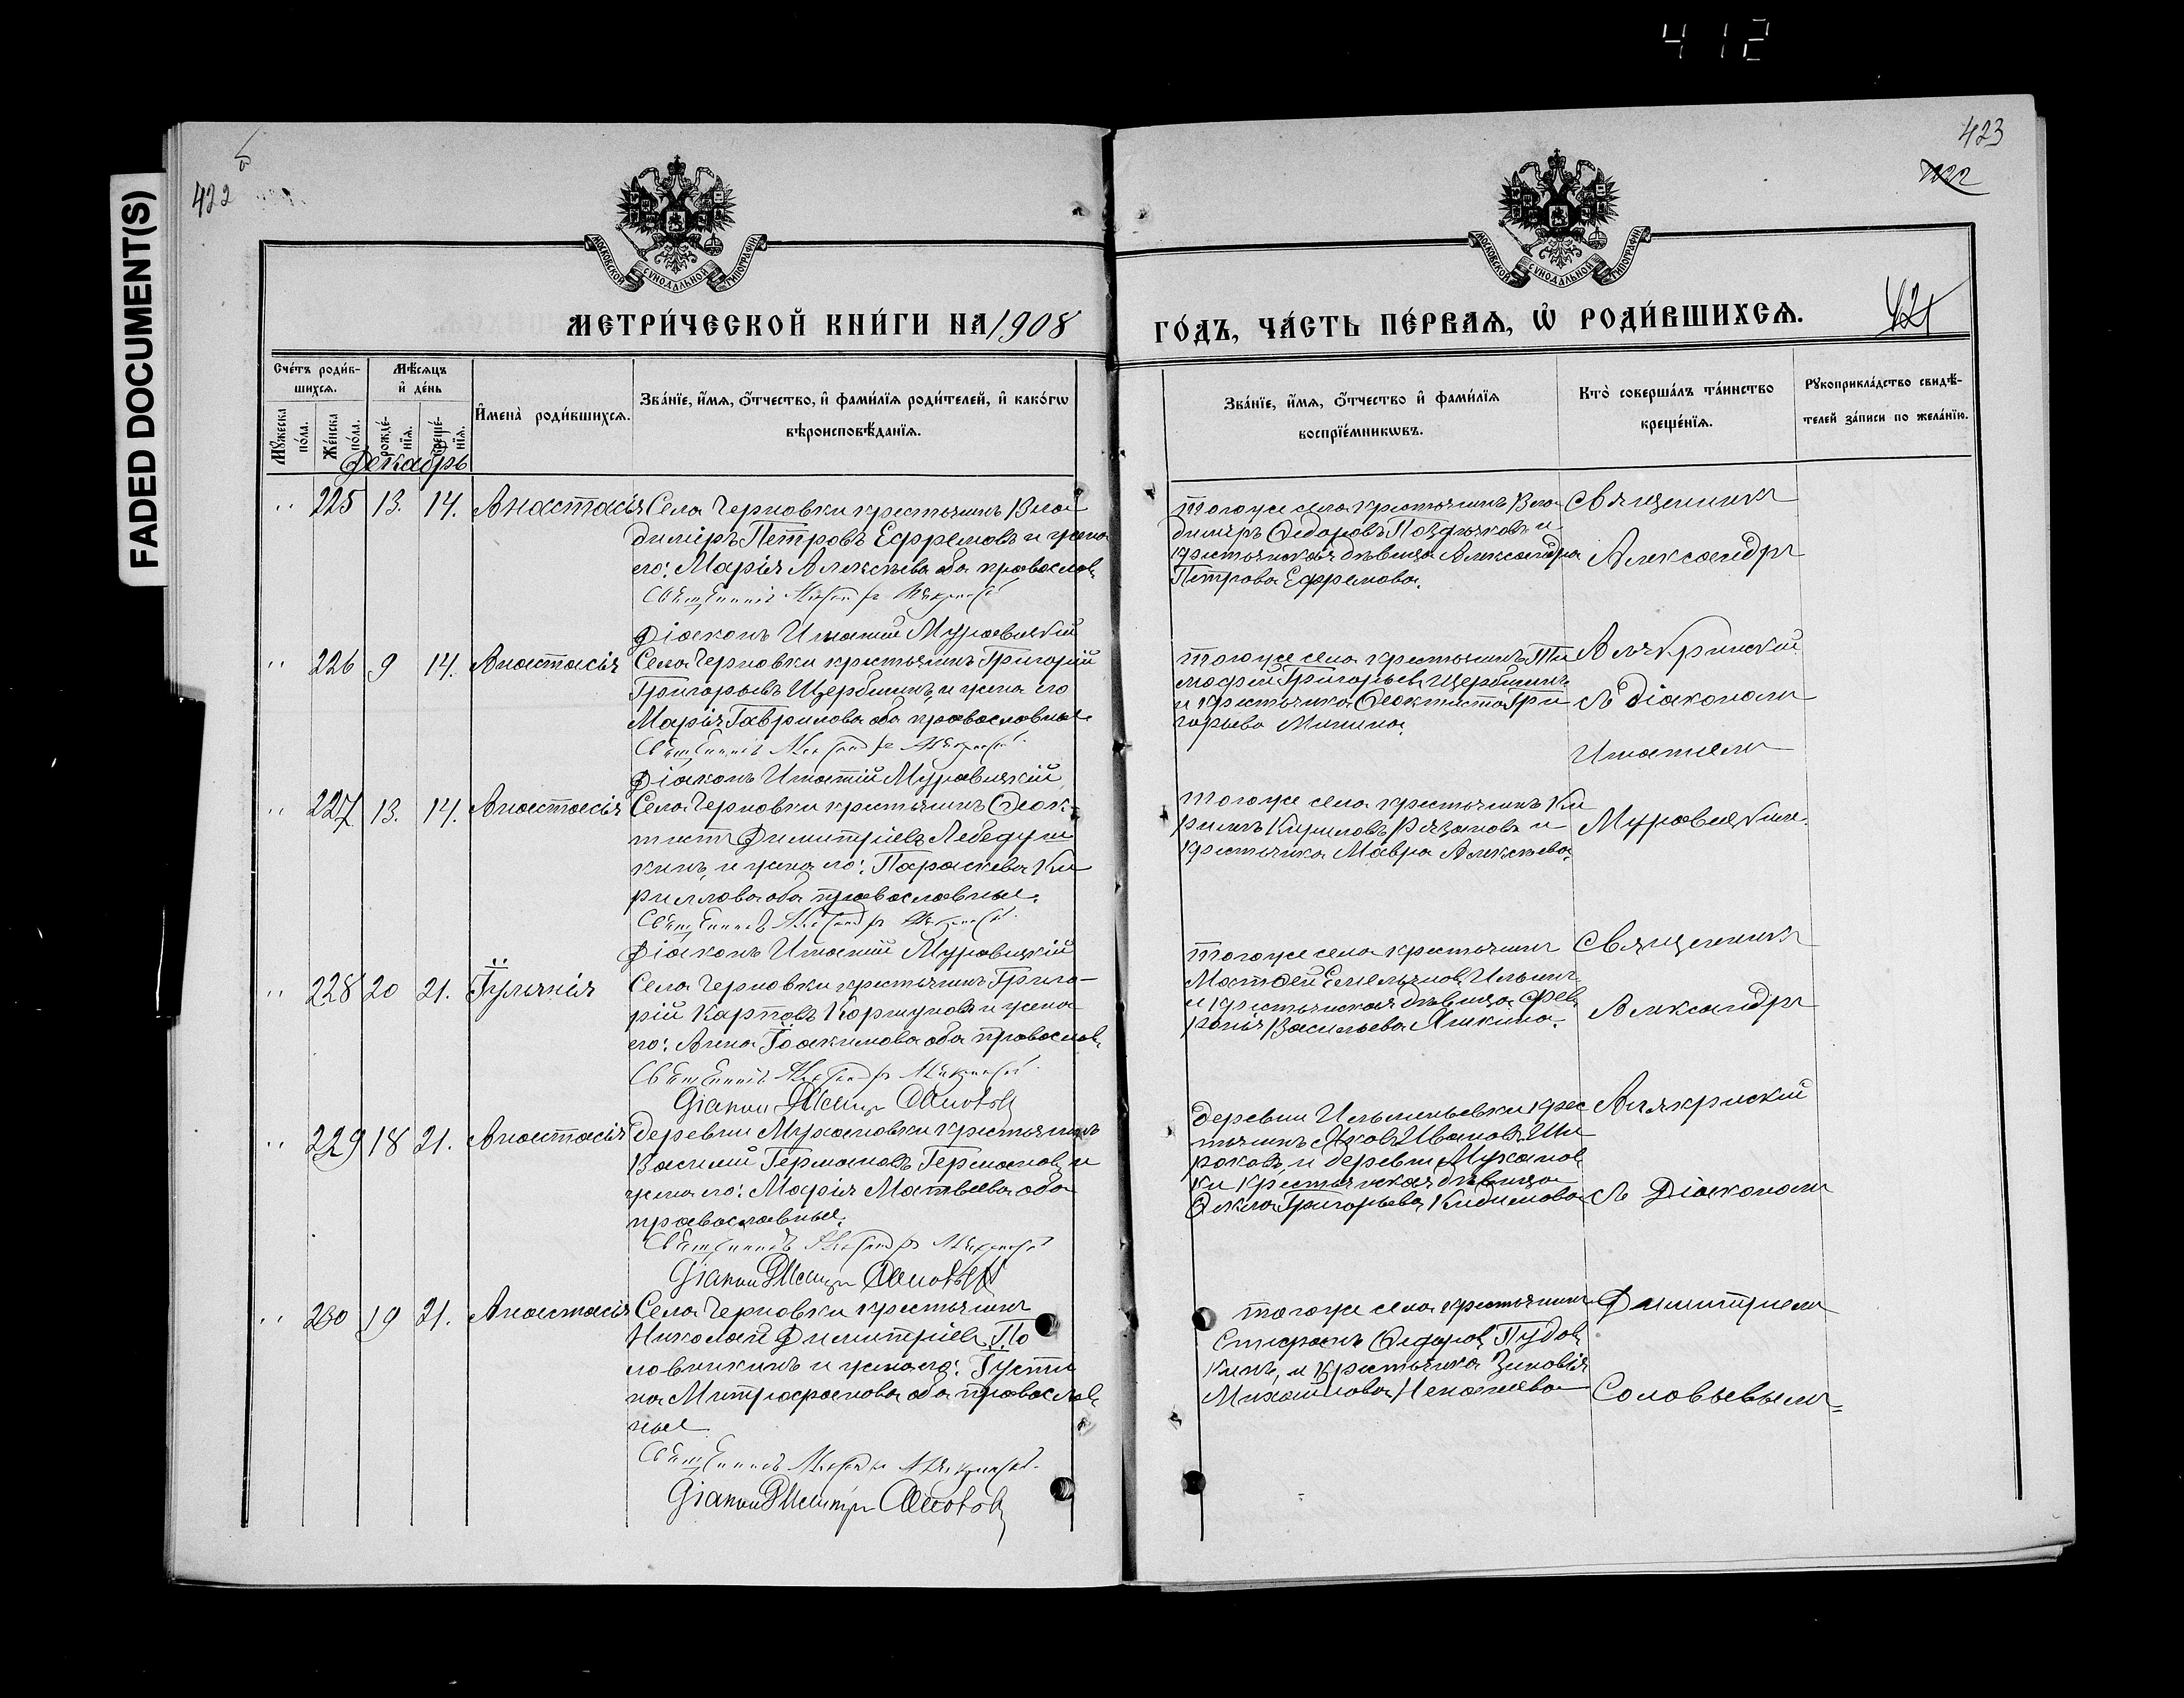 412
FADED DOCUMENT(S)
422
423
МОСКОВСКОЙ СѴНОДАЛЬНОЙ ТИПОГРАФІИ
МОСКОВСКОЙ СѴНОДАЛЬНОЙ ТИПОГРАФІИ
МЕТРИ́ЧЕСКОЙ КНИ́ГИ НА 1908
ГО́ДЪ, ЧА́СТЬ ПЕ́РВАѦ, Ѡ҆ РОДИ́ВШИХСѦ.
421
Сче́тъ роди́в-
шихсѧ.
Мꙋ́жеска по́ла.
Же́нска по́ла.
Мѣ́сѧцъ
и҆ де́нь
рожде́-нїѧ.
креще́-нїѧ.
И҆мена̀ роди́вшихсѧ.
Зва́нїе, и҆́мѧ, ѻ҆́тчество, и҆ фами́лїѧ роди́телей, и҆ како́гѡ
вѣроисповѣ́данїѧ.
Зва́нїе, и҆́мѧ, ѻ҆́тчество и҆ фами́лїѧ
воспрїе́мникѡвъ.
Кто̀ соверша́лъ та́инство
креще́нїѧ.
Рꙋкоприкла́дство свидѣ́-
телей за́писи по жела́нїю.
Декабрь
" 225 13. 14. Анастасія Села Черновки крестьянинъ Вла
димиръ Петровъ Ефремовъ и жена
его: Марія Алексѣева оба православ.
Священникъ Александръ Алякринскій
Діаконъ Игнатій Муравицкій
тогоже села крестьянинъ Вла
димиръ Ѳедоровъ Поздняковъ и
крестьянская дѣвица Александра
Петрова Ефремова.
Священникъ
Александръ
" 226 9 14. Анастасія Села Черновки крестьянинъ Григорій
Григорьевъ Щербининъ, и жена его
Марія Гаврилова оба православные.
Священникъ Александръ Алякринскій
Діаконъ Игнатій Муравицкій
тогоже села крестьянинъ Ти
мофей Григорьевъ Щербининъ
и крестьянка Ѳеоктиста Гри
горьева Минина.
Алякринскій
съ діакономъ
Игнатіемъ
" 227 13. 14. Анастасія Села Черновки крестьянинъ Ѳеок-
тистъ Димитріевъ Лебедуш
кинъ, и жена его: Параскева Ки
риллова оба православные.
Священникъ Александръ Алякринскій
Діаконъ Игнатій Муравицкій
тогоже села крестьянинъ Ки
риллъ Кириловъ Рязановъ и
крестьянка Мавра Алексѣева.
Муравицкимъ.
" 228 20 21. Іуліанія Села Черновки крестьянинъ Григо-
рій Карповъ Коршуновъ и жена
его: Анна Іоакимова оба православ.
Священникъ Александръ Алякринскій
Діаконъ Димитрій Соловьевъ
тогоже села крестьянинъ
Матѳей Емельяновъ Ильинъ
и крестьянская дѣвица Фев
ронія Васильева Яшкина.
Священникъ
Александръ
" 229 18 21. Анастасія Деревни Мухановки крестьянинъ
Василій Германовъ Германовъ, и
жена его: Марія Матвѣева оба
православные.
Священникъ Александръ Алякринскій
Діаконъ Димитрій Соловьевъ
деревни Ильменьевки крес
тьянинъ Яковъ Ивановъ Ши
роковъ, и деревни Муханов
ки крестьянская дѣвица
Ѳекла Григорьева Кидимова
Алякрискій
съ Діакономъ
" 230 19 21. Анастасія Села Черновки крестьянинъ
Николай Димитріевъ По
ловинкинъ и жена его: Іусти
на Митрофанова оба православ
ные
Священникъ Александръ Алякринскій
Діаконъ Димитрій Соловьевъ
тогоже села крестьянинъ
Стефанъ Ѳедоровъ Пудов
кинъ, и крестьянка Зиновія
Михаилова
Димитріемъ
Соловьевымъ=